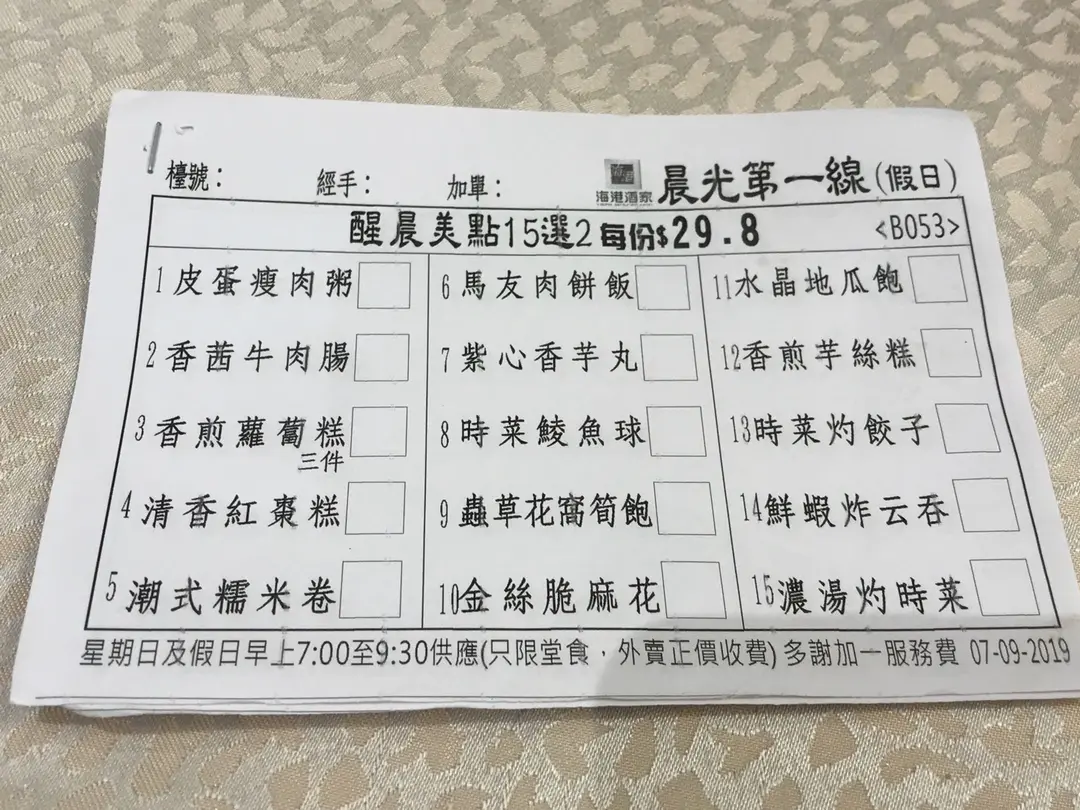 檯號： 經手： 加單： 海港酒家 晨光第一線(假日)
醒晨美點15選2 每份$29.8 <B053>
1 皮蛋瘦肉粥
2 香茜牛肉腸
3 香煎蘿蔔糕
三件
4 清香紅棗糕
5 潮式糯米卷
6 馬友肉餅飯
7 紫心香芋丸
8 時菜鯪魚球
9 蟲草花窩筍飽
10 金絲脆麻花
11 水晶地瓜飽
12 香煎芋絲糕
13 時菜灼餃子
14 鮮蝦炸云吞
15 濃湯灼時菜
星期日及假日早上7:00至9:30供應(只限堂食，外賣正價收費) 多謝加一服務費 07-09-2019